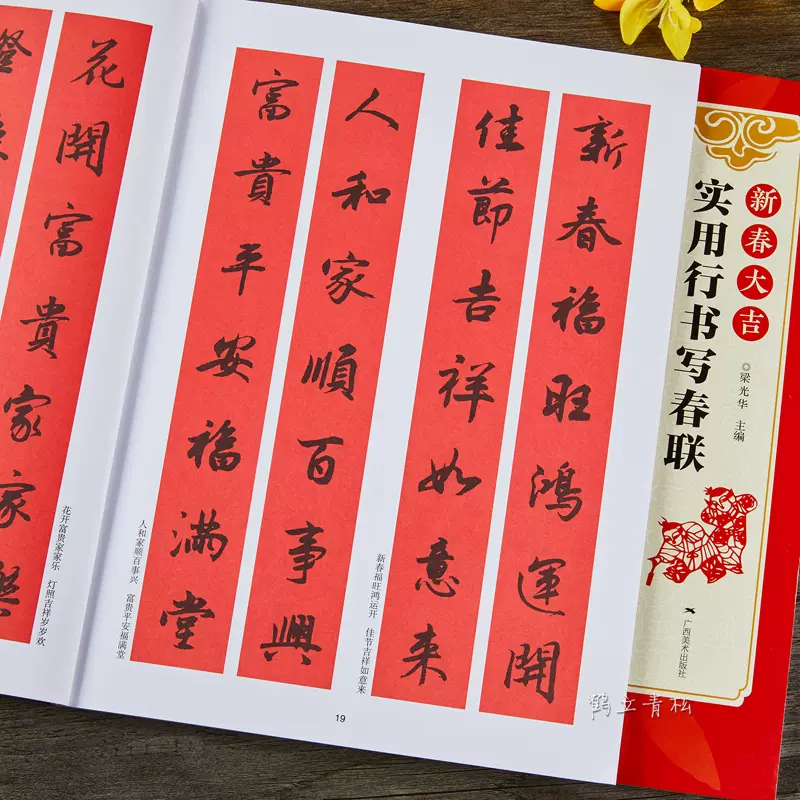 新春大吉
实用行书写春联
◎梁光华 主编
广西美术出版社
新春福旺鴻運開
佳節吉祥如意來
新春福旺鸿运开 佳节吉祥如意来
人和家順百事興
富貴平安福滿堂
人和家顺百事兴 富贵平安福满堂
19
花開富貴家家
花开富贵家家乐 灯照吉祥岁岁欢
鹤立青松